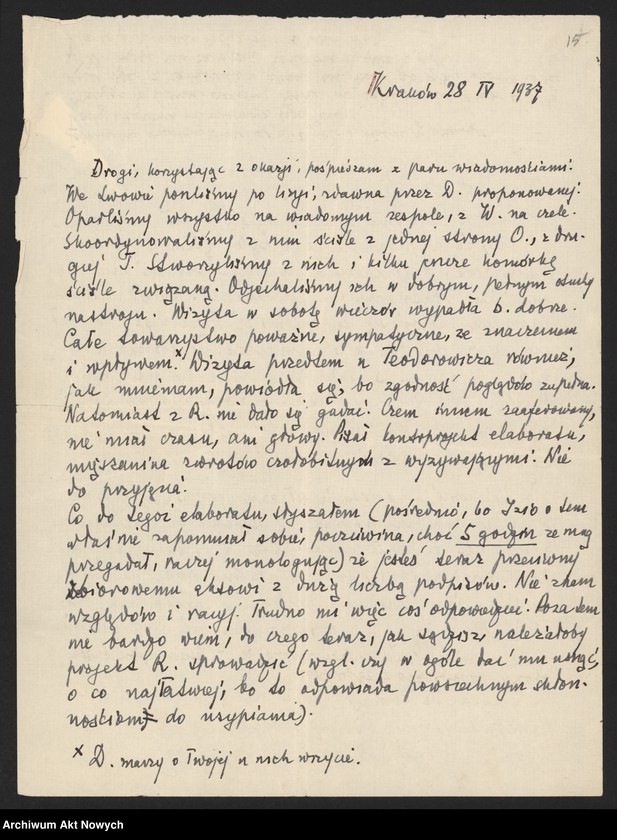 15
Kraków 28 IV 1937
Drogi, korzystając z okazji, pośpieszam z paru wiadomościami.
We Lwowie poszliśmy po linji, zdawna przez D. proponowanej.
Oparliśmy wszystko na wiadomym zespole, z W. na czele.
Skoordynowaliśmy z nim ściśle z jednej strony O., z dru-
giej T. Stworzyliśmy z nich i kilku jeszcze komórkę
ściśle związaną. Odjechaliśmy ich w dobrym, pełnym otuchy
nastroju. Wizyta w sobotę wieczór wypadła b. dobrze.
Całe towarzystwo poważne, sympatyczne, ze znaczeniem
i wpływem.x Wizyta przedtem u Teodorowicza również,
jak mniemam, powiodła się, bo zgodność poglądów zupełna.
Natomiast z R. nie dało się gadać. Czem innem zaaferowany,
nie miał czasu, ani głowy. Dał kontrprojekt elaboratu,
mieszanina zwrotów czołobitnych z wyzywającymi. Nie
do przyjęcia.
Co do tegoż elaboratu, słyszałem (pośrednio, bo Izio o tem
właśnie zapomniał sobie, poczciwina, choć 5 godzin ze mną
przegadał, raczej monologując) że jesteś teraz przeciwny
zbiorowemu aktowi z dużą liczbą podpisów. Nie znam
względów i racyj. Trudno mi więc coś odpowiedzieć. Poza tem
nie bardzo wiem, do czego teraz, jak sądzisz, należałoby
projekt R. sprowadzić (wzgl. czy w ogóle dać mu usnąć,
o co najłatwiej, bo to odpowiada powszechnym skłon-
nościom do usypiania).
x D. marzy o Twojej u nich wizycie.
Archiwum Akt Nowych